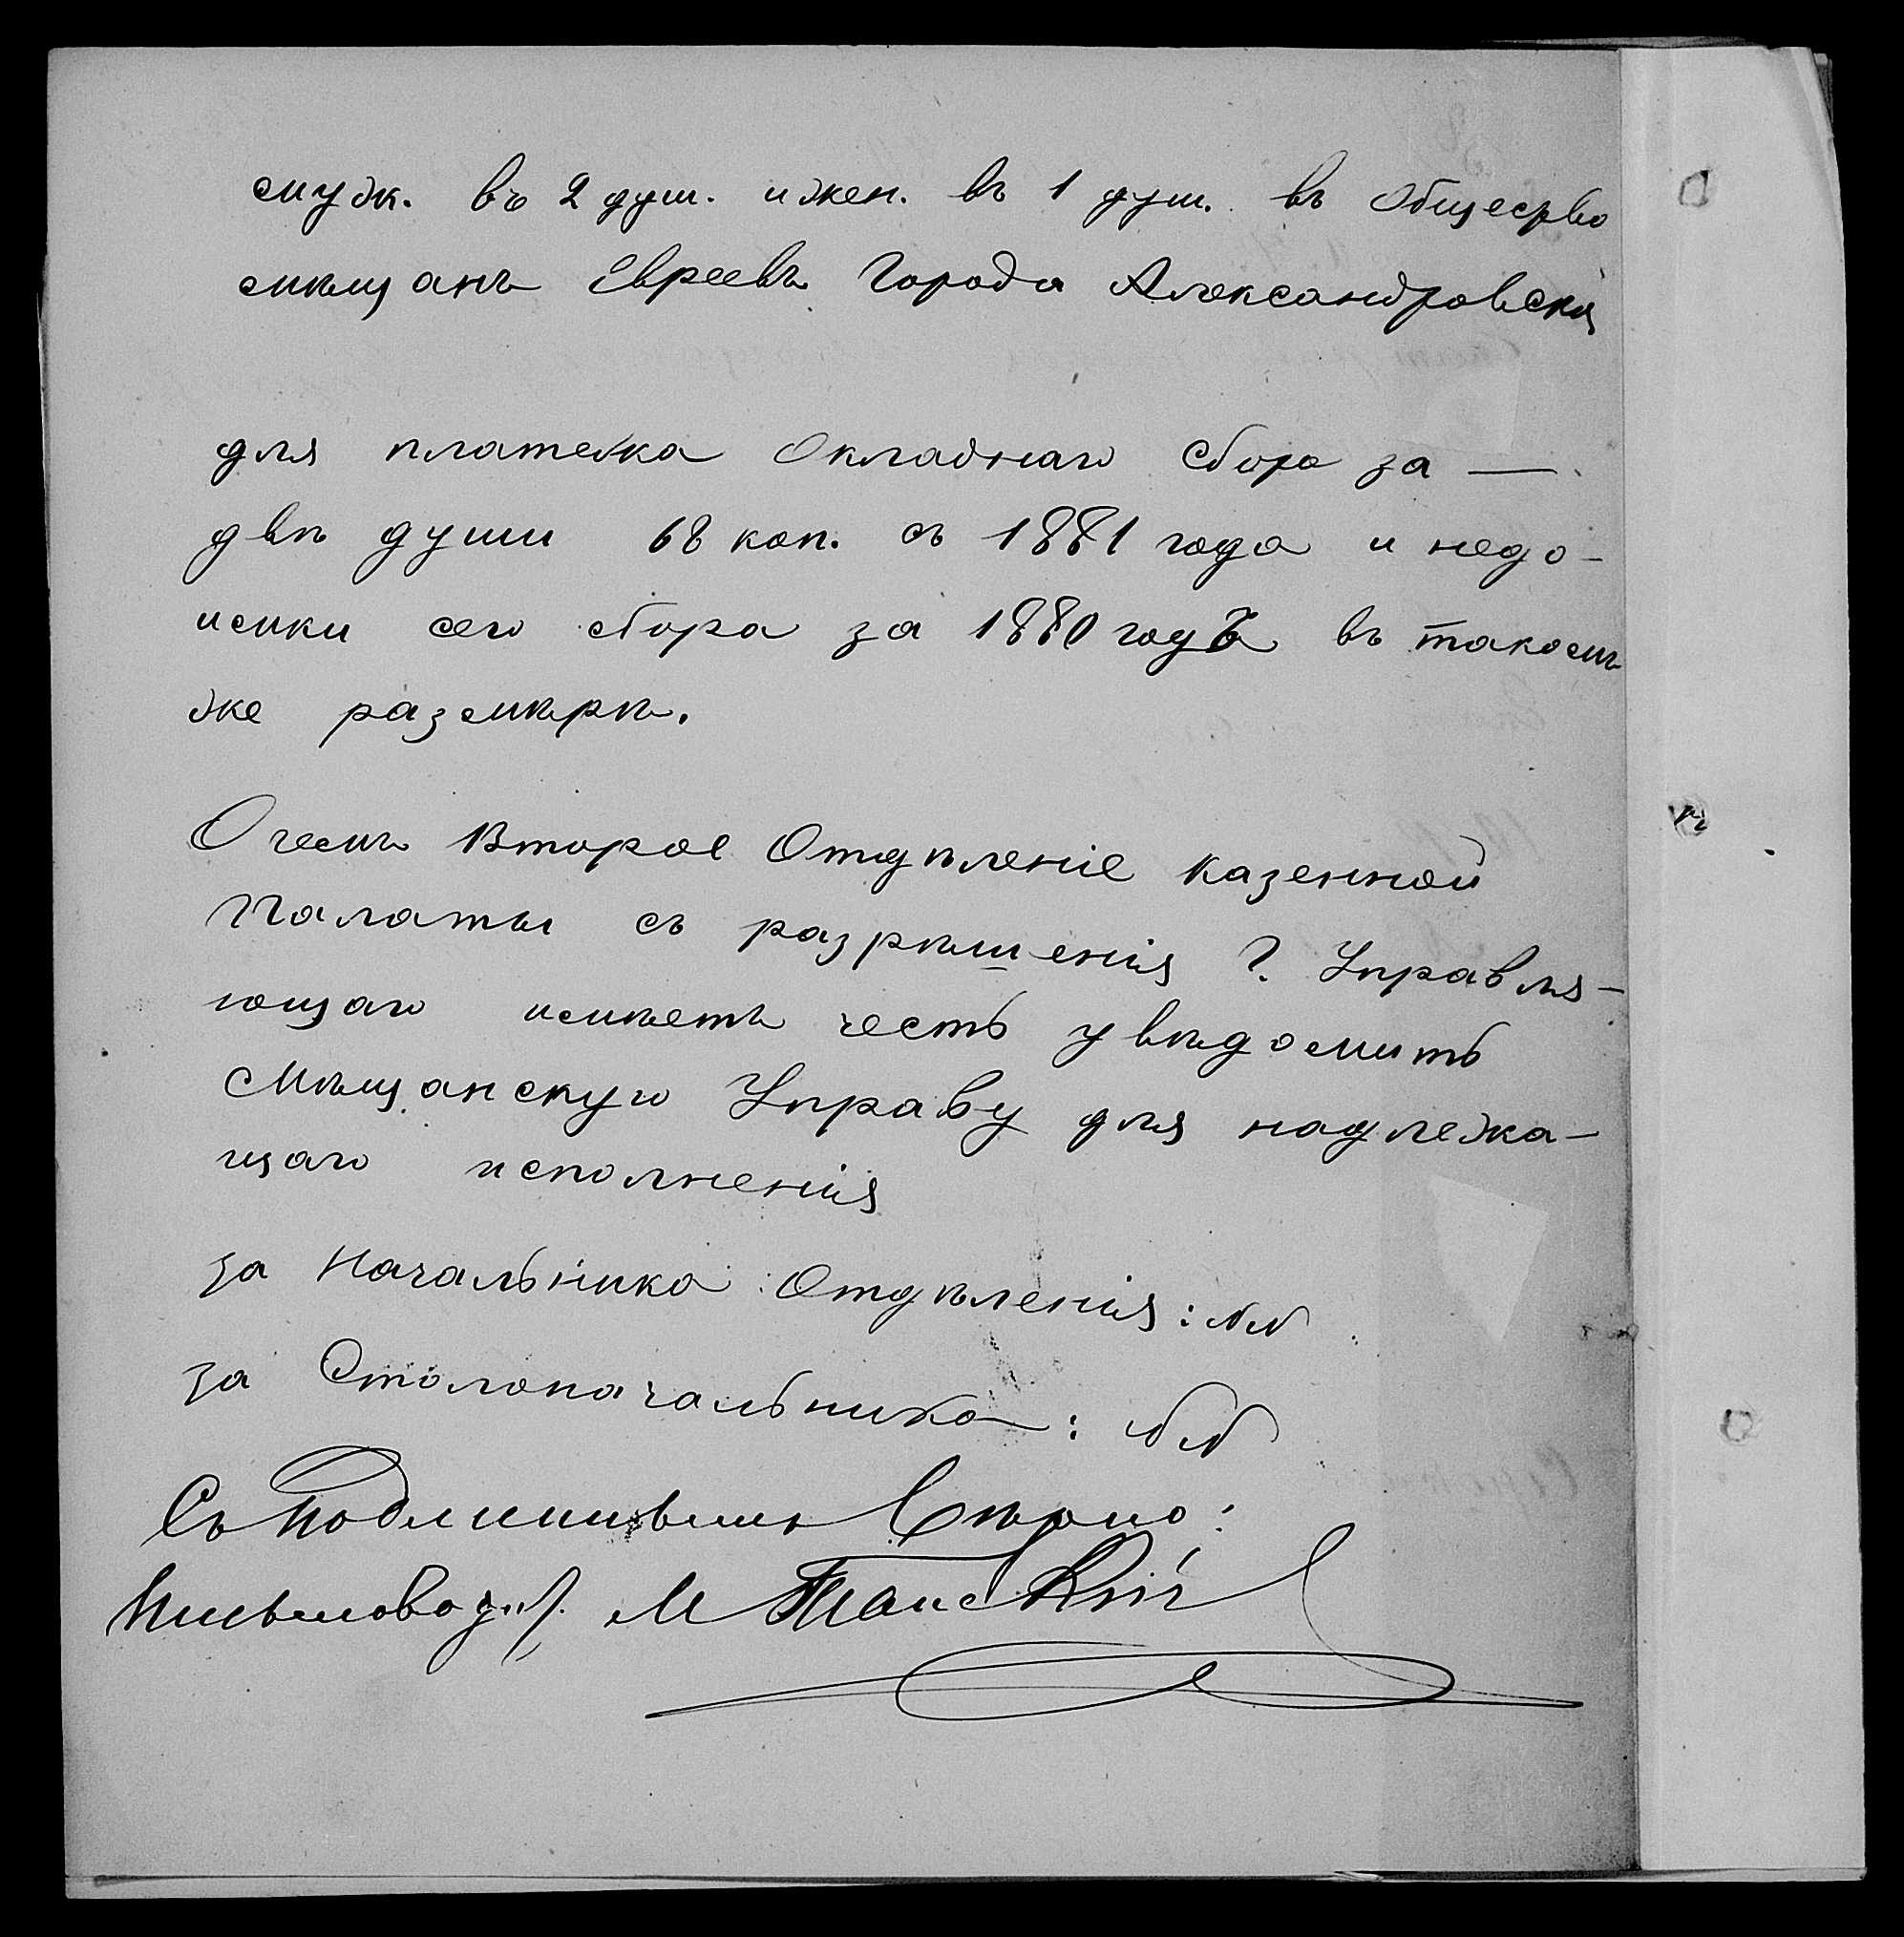 муж. въ 2 душ. и жен. въ 1 душ. въ Общество
мѣщанъ Евреевъ Города Александровска
для платежа Окладнаго сбора за —
двѣ души 68 коп. съ 1881 года и недо-
имки сего сбора за 1880 годъ въ такомъ
же размѣрѣ.
О чемъ Второе Отдѣленіе Казенной
Палаты съ разрѣшенія Г. Управля-
ющаго имѣетъ честь увѣдомить
Мѣщанскую Управу для надлежа-
щаго исполненія
за Начальника Отдѣленія: NN
за Столоначальника: NN
Съ подлиннымъ вѣрно:
Письмовод. М